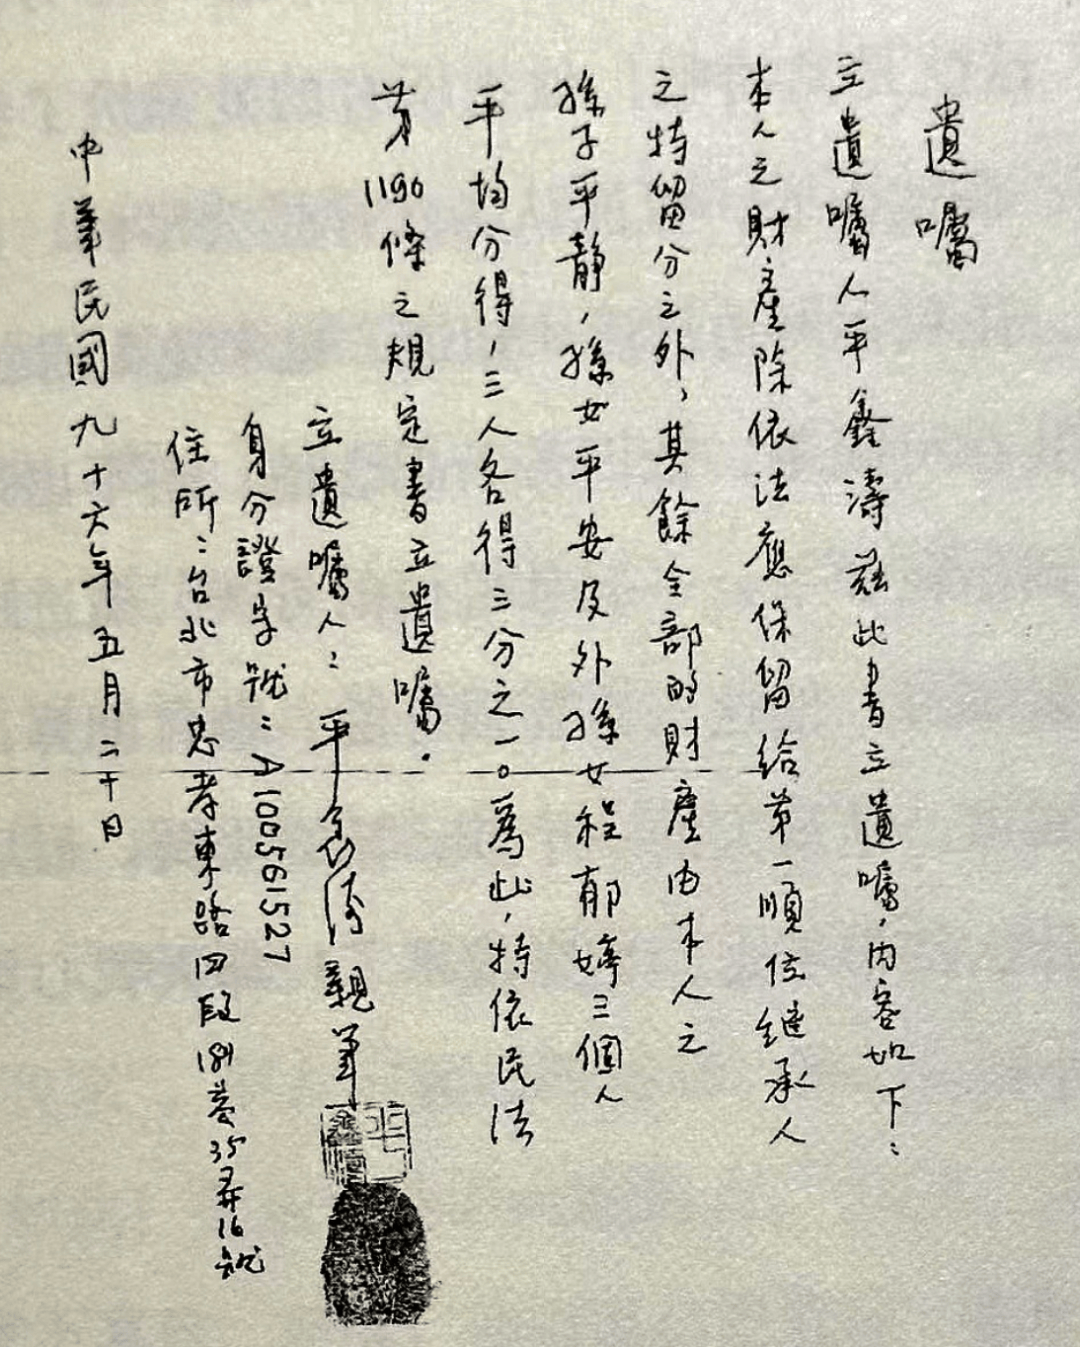 遺囑
立遺囑人平鑫濤茲此書立遺囑,內容如下:
本人之財產除依法應保留給第一順位繼承人
之特留分之外,其餘全部的財產由本人之
孫子平靜,孫女平安及外孫女程郁婷三個人
平均分得,三人各得三分之一。為此,特依民法
第1190條之規定書立遺囑.
立遺囑人:平鑫濤親筆
平鑫濤
身分證字號:A100561527
住所:台北市忠孝東路四段181巷35弄16號
中華民國九十六年五月二十日